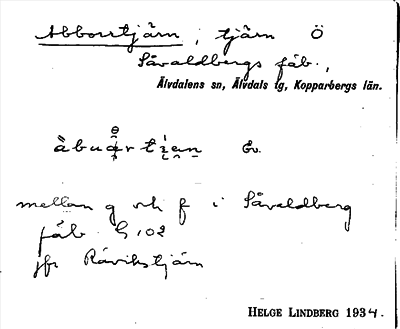 Abborrtjärn, tjärn Ö
Såvaldbergs fäb.,
Älvdalens sn, Älvdals tg, Kopparbergs län.
mellan g och f i Såvaldberg
fäb G 102
jfr Råvikstjärn
HELGE LINDBERG 1934.